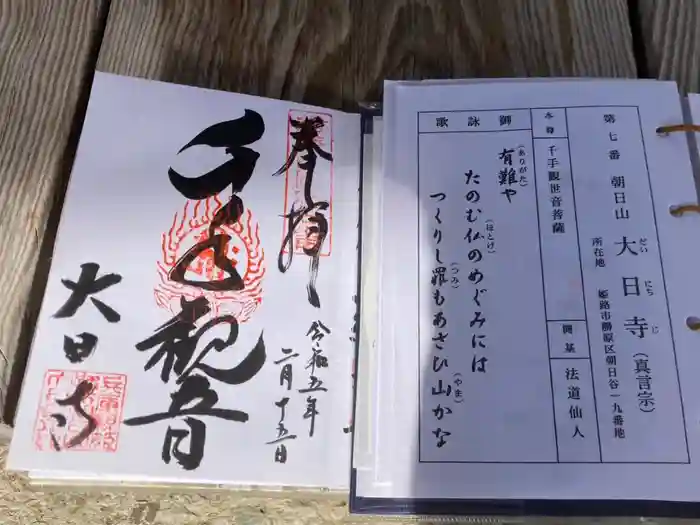 奉拝
令和五年
二月十五日
千手観音
大日寺
第七番 朝日山 大日寺(真言宗)
だい にち じ
所在地 姫路市勝原区朝日谷一九番地
本尊 千手観世音菩薩
開基 法道仙人
御詠歌
有難や
(ありがた)
たのむ仏のめぐみには
(ほとけ)
つくりし罪もあさひ山かな
(つみ)
(やま)